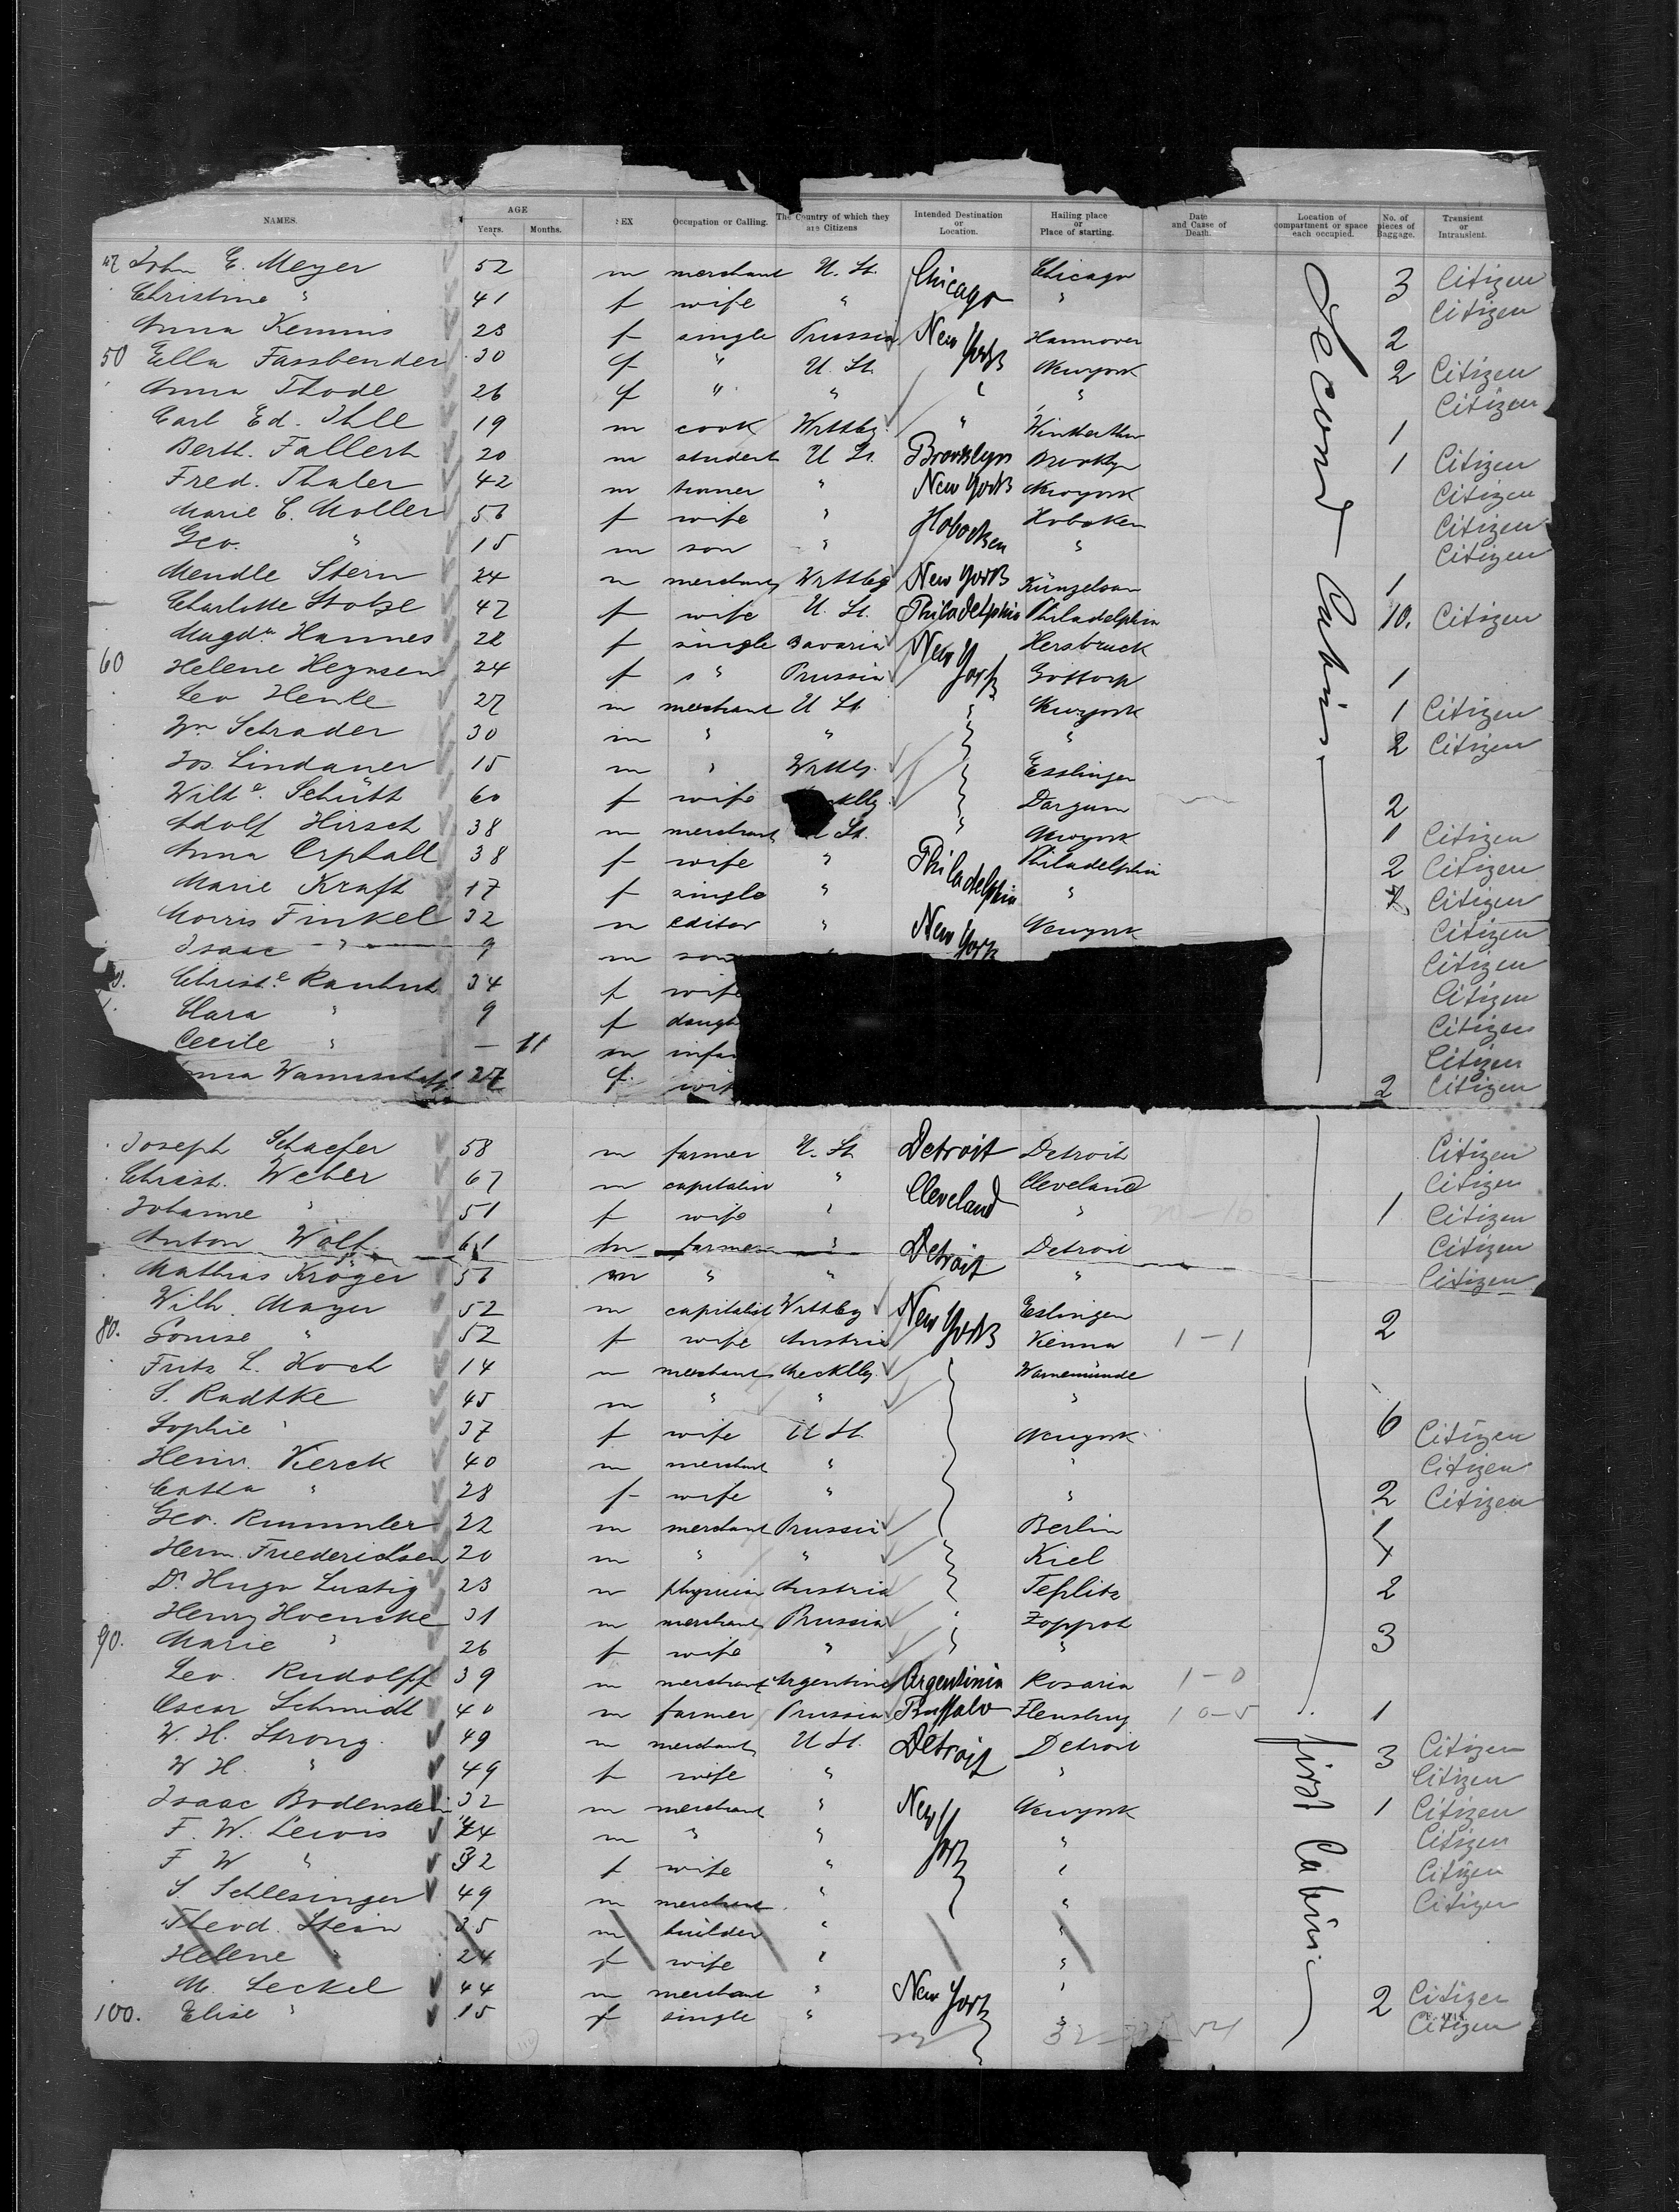 NAMES. AGE Years. Months. SEX Occupation or Calling. The Country of which they are Citizens Intended Destination or Location. Hailing place or Place of starting. Date and Cause of Death. Location of compartment or space each occupied. No. of pieces of Baggage. Transient or Intransient.
47 John E. Meyer 52 m merchant U. St. Chicago Chicago 3 Citizen
Christine " 41 f wife " " Citizen
Anna Kemnis 23 f single Prussia New York Hannover 2
50 Ella Fassbender 30 f " U. St. Newyork 2 Citizen
Anna Thode 26 f " " " " Citizen
Carl Ed. Ihle 19 m cook Wrttbg. " Winterthur 1
Berth. Fallert 20 m student U St. Brooklyn Brooklyn 1 Citizen
Fred. Thaler 42 m " New York Newyork Citizen
Marie C. Moller 56 f wife " Hobocken Hoboken Citizen
Geo. " 15 m son " " Citizen
Mendle Stern 24 m merchant Wrttbg New York Künzelsau 1
Charlotte Stolze 42 f wife U. St. Philadelphia Philadelphia 10. Citizen
Magda Hannes 22 f single Bavaria New York Hersbruck
60 Helene Heynsen 24 f " Prussia Gottorp 1
Leo Henle 27 m merchant U St. " Newyork 1 Citizen
Wm Schrader 30 m " " " 2 Citizen
Jos. Lindauer 15 m " Wrttbg. Esslingen
Wilhe. Schütt 60 f wife Dargun 2
Adolf Hirsch 38 m merchant U St. " Newyork 1 Citizen
Anna Orphall 38 f wife " Philadelphia Philadelphia 2 Citizen
Marie Kraft 17 f single " " Citizen
Morris Finkel 32 m editor " New York Newyork Citizen
Isaac " 9 m son Citizen
Christe Rauhut 34 f wife Citizen
Clara " 9 f daugh Citizen
Cecile " — 11 m infan Citizen
27 f. wif 2 Citizen
Second Cabin
Joseph Schaefer 58 m farmer U. St. Detroit Detroit Citizen
Christ. Weber 67 m capitalist " Cleveland Cleveland Citizen
Johanne " 51 f wife " " 1 Citizen
Anton Wolf 61 m farmer " Detroit Detroit Citizen
Mathias Kröger 56 m " " " Citizen
Wilh. Mayer 52 m capitalist Wrttbg New York Esslingen
80. Louise " 52 f wife Austria Vienna 1 - 1 2
Fritz L. Koch 14 m merchant Mecklbg. Warnemünde
S. Radtke 45 m " " "
Sophie " 37 f wife U St. Newyork 6 Citizen
Heinr. Vierck 40 m merchant " " Citizen
Catha " 28 f wife " " 2 Citizen
Geo. Rummler 22 m merchant Prussia Berlin 1
Herm. Friederichsen 20 m " " Kiel
Dr. Hugo Lustig 23 m physician Austria Teplitz 2
Henry Hoencke 31 m merchant Prussia " Zoppot
90. Marie " 26 f wife " " " 3
Leo. Rudolff 39 m merchant Argentine Argentinia Rosaria 1 - 0
Oscar Schmidt 40 m farmer Prussia Buffalo Flensburg 10-5 1
W. H. Strong. 49 m merchant U St. Detroit Detroit 3 Citizen
W H. " 49 f wife " " Citizen
Isaac Bodenstein 32 m merchant " New York Newyork 1 Citizen
F. W. Lewis 44 m " " " Citizen
F W " 32 f wife " " Citizen
S Schlesinger 49 m merchant " " Citizen
Theod. Stein 35 m builder " "
Helene " 24 f wife " "
M. Leckel 44 m merchant " New York " 2 Citizen
100. Elise " 15 f single " " Citizen
first Cabin